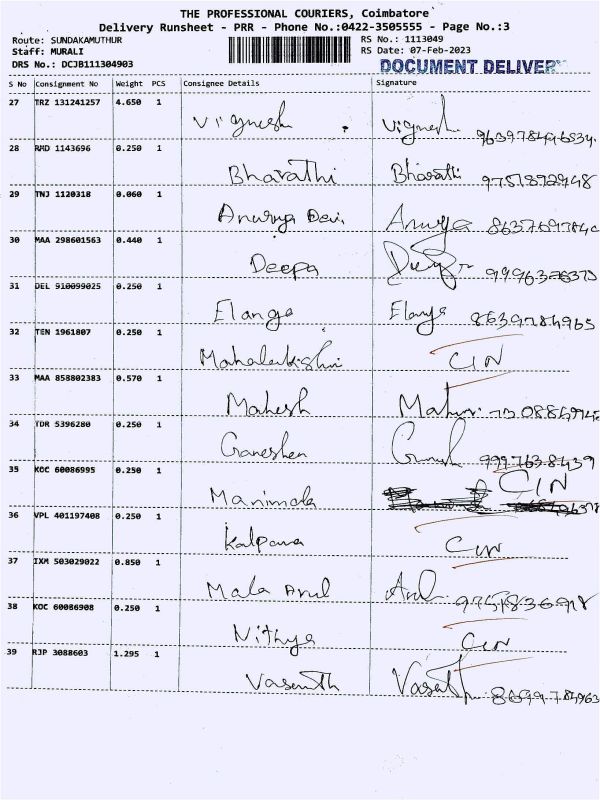 THE PROFESSIONAL COURIERS, Coimbatore
Delivery Runsheet - PRR - Phone No.:0422-3505555 - Page No.:3
Route: SUNDAKAMUTHUR RS No.: 1113049
Staff: MURALI RS Date: 07-Feb-2023
DRS No.: DCJB111304903 DOCUMENT DELIVERY
S No Consignment No Weight PCS Consignee Details Signature
27 TRZ 131241257 4.650 1
Vignesh Vignesh
28 RMD 1143696 0.250 1
Bharathi Bharathi 9751892948
29 TNJ 1120318 0.060 1
Anurya Devi Anurya
30 MAA 298601563 0.440 1
Deepa
31 DEL 910099025 0.250 1
Elango 8639784965
32 TEN 1961807 0.250 1
Mahalakshmi CIN
33 MAA 858802383 0.570 1
Mahesh
34 TDR 5396280 0.250 1
Ganeshan
35 KOC 60086995 0.250 1
Manimala CIN
36 VPL 401197408 0.250 1
Kalpana CIN
37 IXM 503029022 0.850 1
Mala Arul Arul 9751836918
38 KOC 60086908 0.250 1
Nithya CIN
39 RJP 3088603 1.295 1
Vasanth